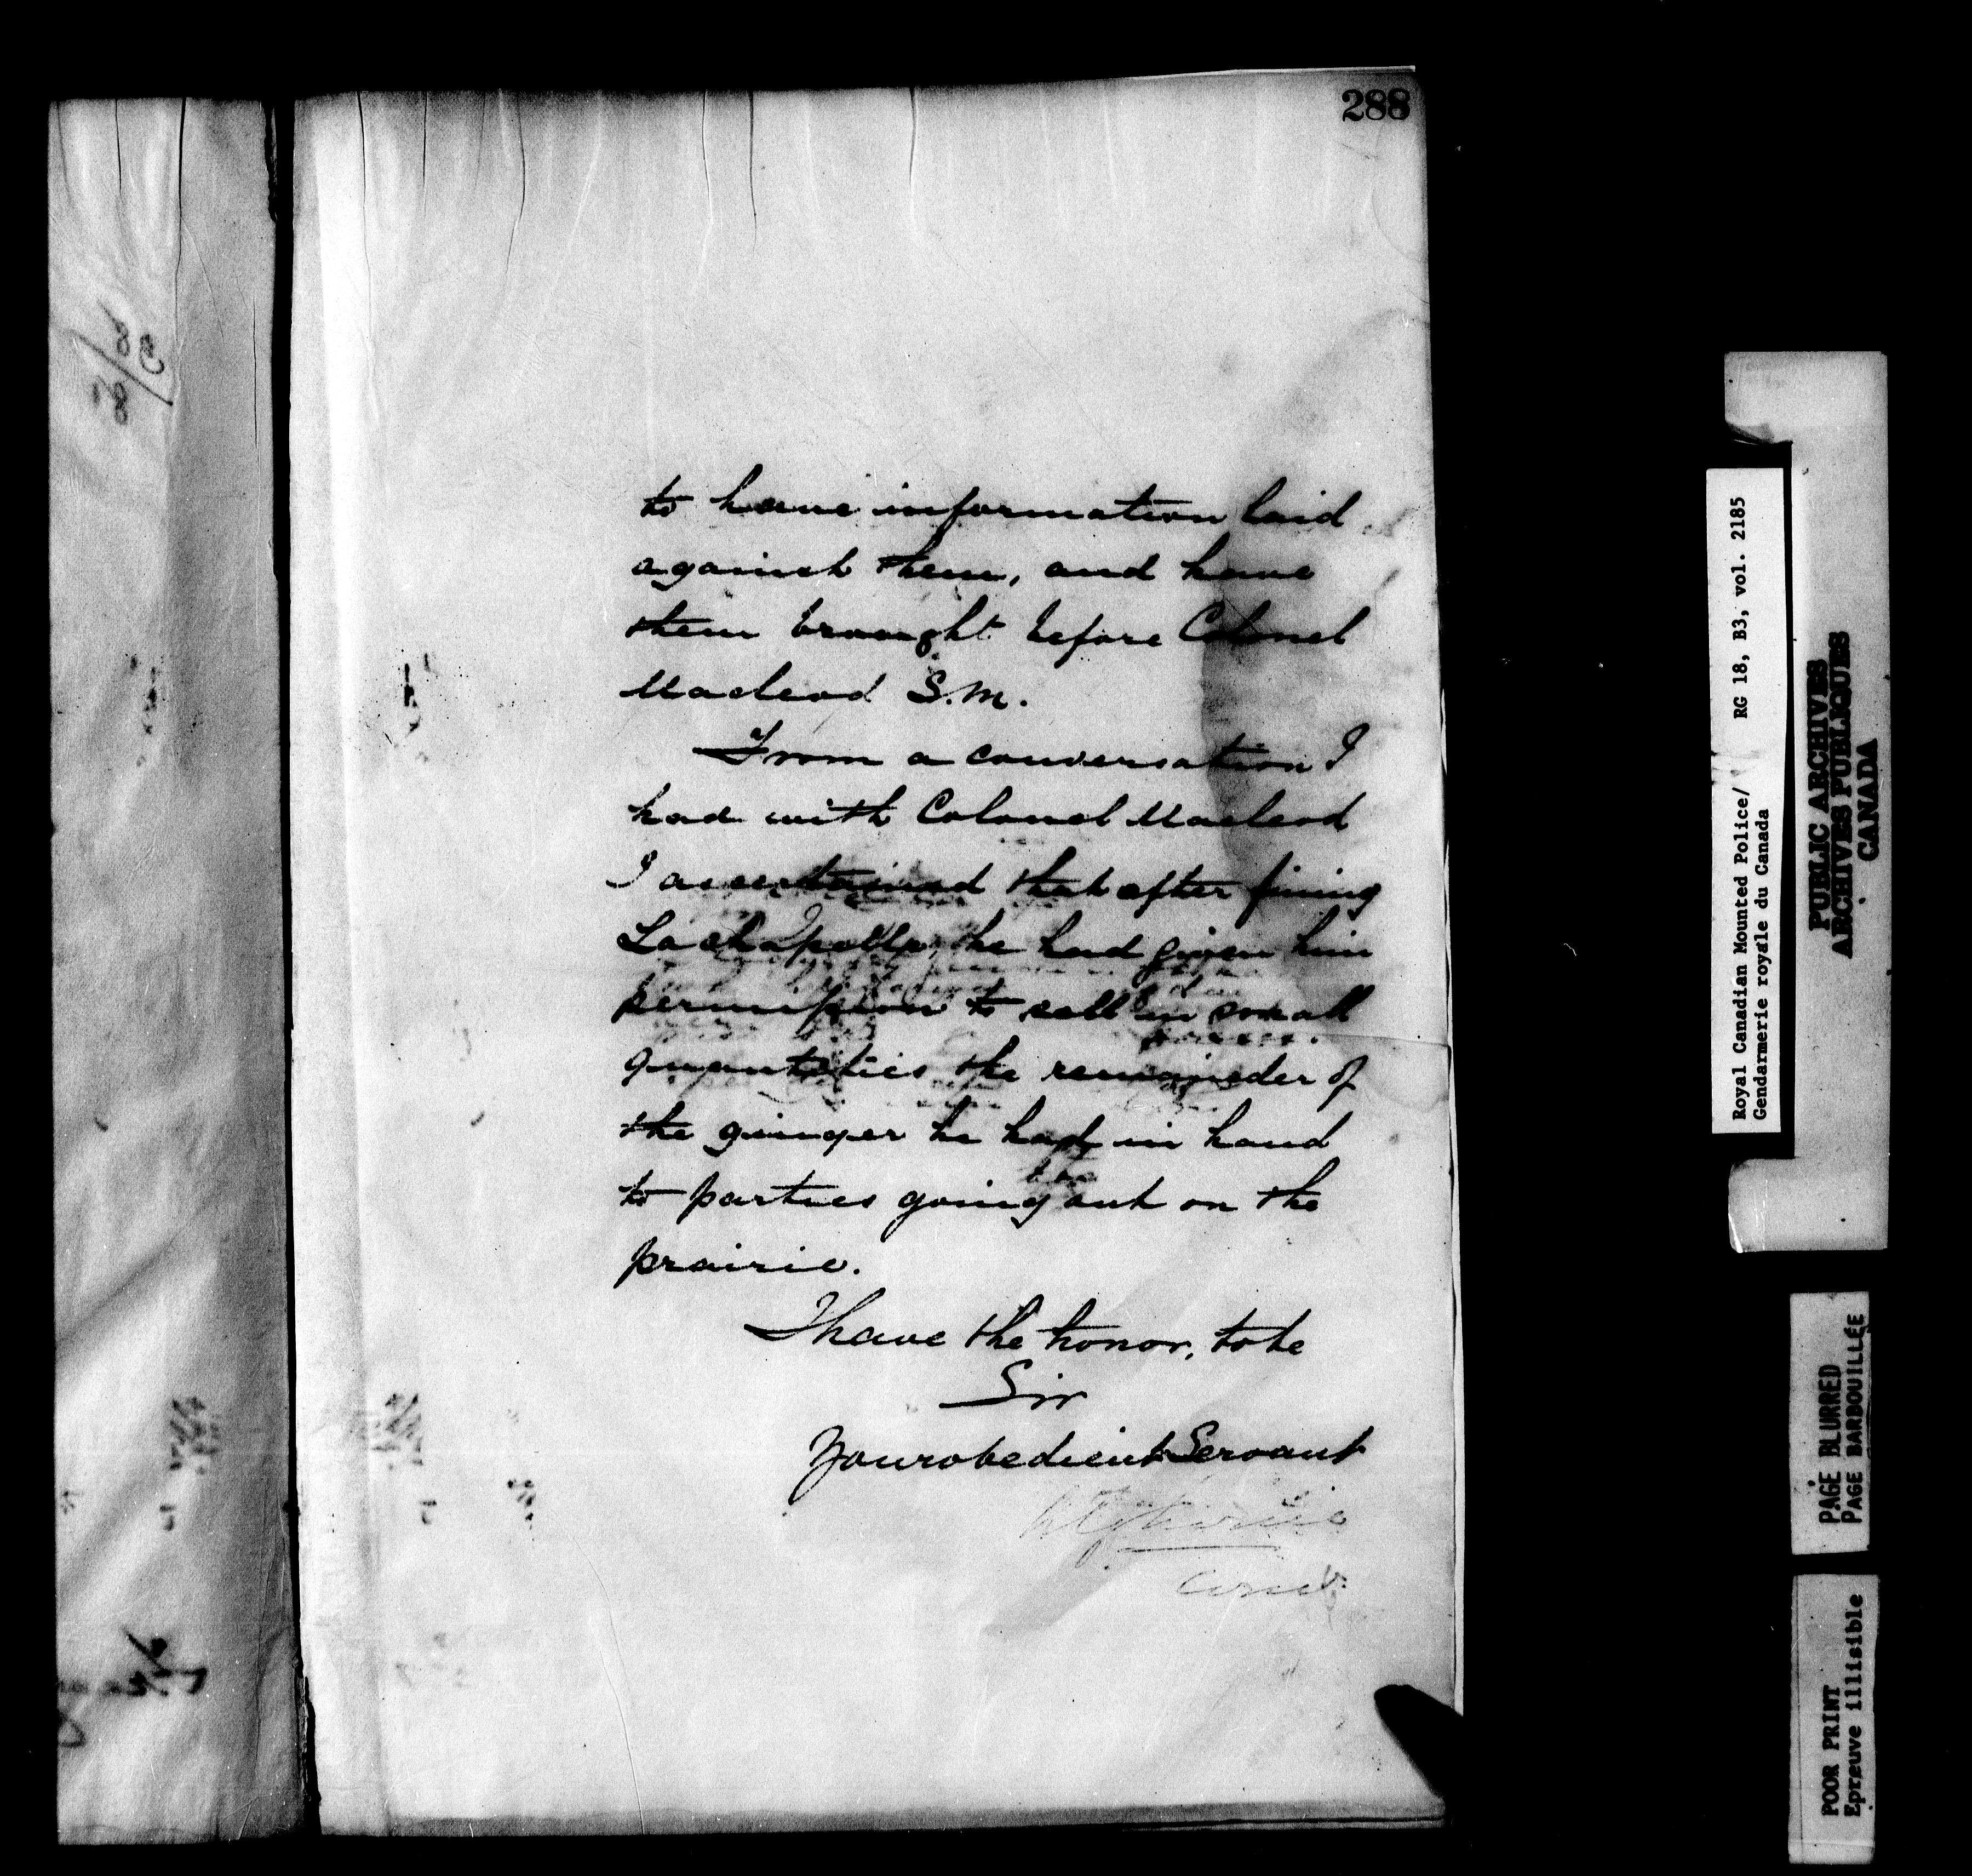 288
to have information laid
against them, and have
them brought before Colonel
Macleod S.M.
From a conversation I
had with Colonel Macleod
I ascertained that after fining
Lachapelle, he had given him
permission to sell in small
quantities the remainder of
the ginger he had in hand
to parties going out on the
prairie.
I have the honor, to be
Sir
Your obedient Servant
Royal Canadian Mounted Police/ RG 18, B3, vol. 2185
Gendarmerie royale du Canada
PUBLIC ARCHIVES
ARCHIVES PUBLIQUES
CANADA
PAGE BLURRED
PAGE BARBOUILLÉE
POOR PRINT
Epreuve illisible